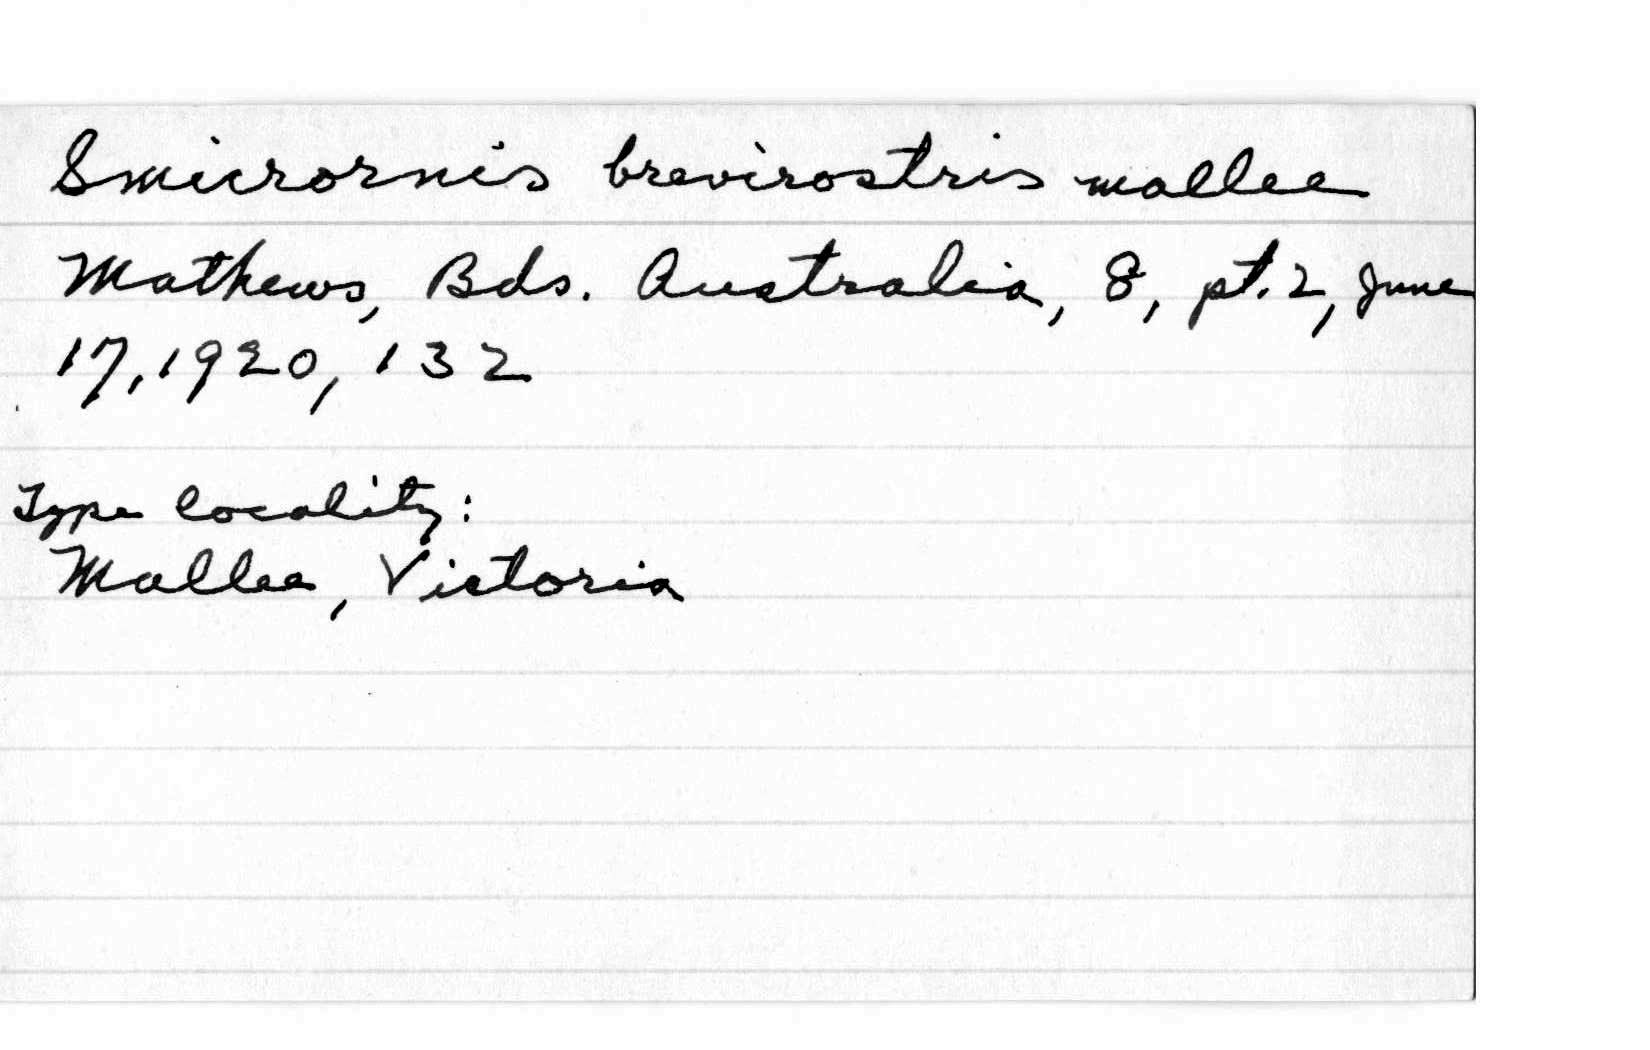 Smicrornis brevirostris mallee
Mathews, Bds. Australia, 8, pt. 2, June
17, 1920, 132
Type locality:
Mallee, Victoria